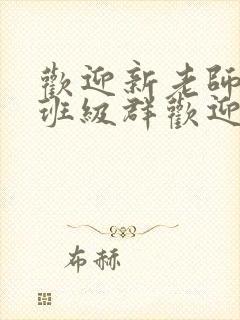 歡迎新老師
班級群歡迎
布赫